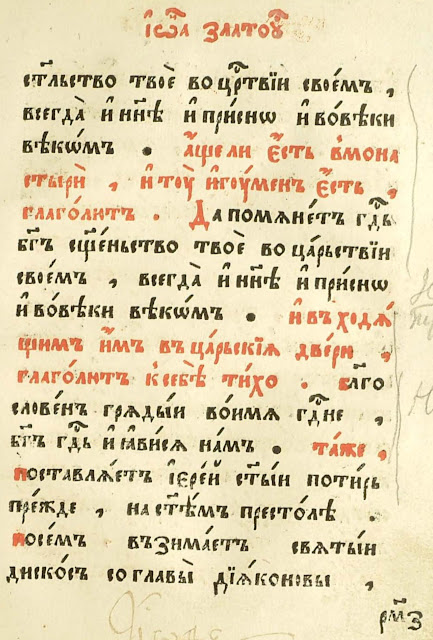 і҆ѡ҃а златоꙋ҃
ст҃льство твоѐ во цр҃твїи свое́мъ ,
всегда̀ и҆ нн҃ѣ и҆ при́снѡ и҆ во́вѣки
вѣко́мъ . а҆́ще ли є҆́сть в мона
стырѝ , и҆ тоу̀ и҆гоу́менъ є҆́сть ,
глаго́лютъ . Да помѧне́тъ гд҃ь
бг҃ъ сщ҃е́ньство твоѐ во ца́рьствїи
свое́мъ , всегда̀ и҆ нн҃ѣ и҆ при́снѡ
и҆ во́вѣки вѣко́мъ . и҆ въходѧ́
щимъ и҆̀мъ въ ца́рьскїѧ две́ри ,
глаго́лютъ к себѣ̀ ти́хо . бл҃го
слове́нъ грѧды́и во́имѧ гд҃не ,
бг҃ъ гд҃ь и҆ ꙗ҆ви́сѧ на́мъ . та́же ,
поставлѧ́етъ і҆ере́й ст҃ы́и поти́рь
пре́жде , на ст҃ѣ́мъ престо́лѣ .
посе́мъ въ́зима́етъ свѧты́и
ди́скосъ со главы̀ дїѧ́коновы ,
рм҃з